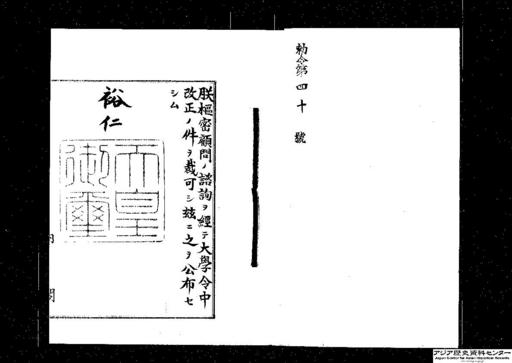 勅令第四十號
朕樞密顧問ノ諮詢ヲ經テ大學令中
改正ノ件ヲ裁可シ玆ニ之ヲ公布セ
シム
裕仁
天皇御璽
内閣
アジア歴史資料センター
Japan Center for Asian Historical Records